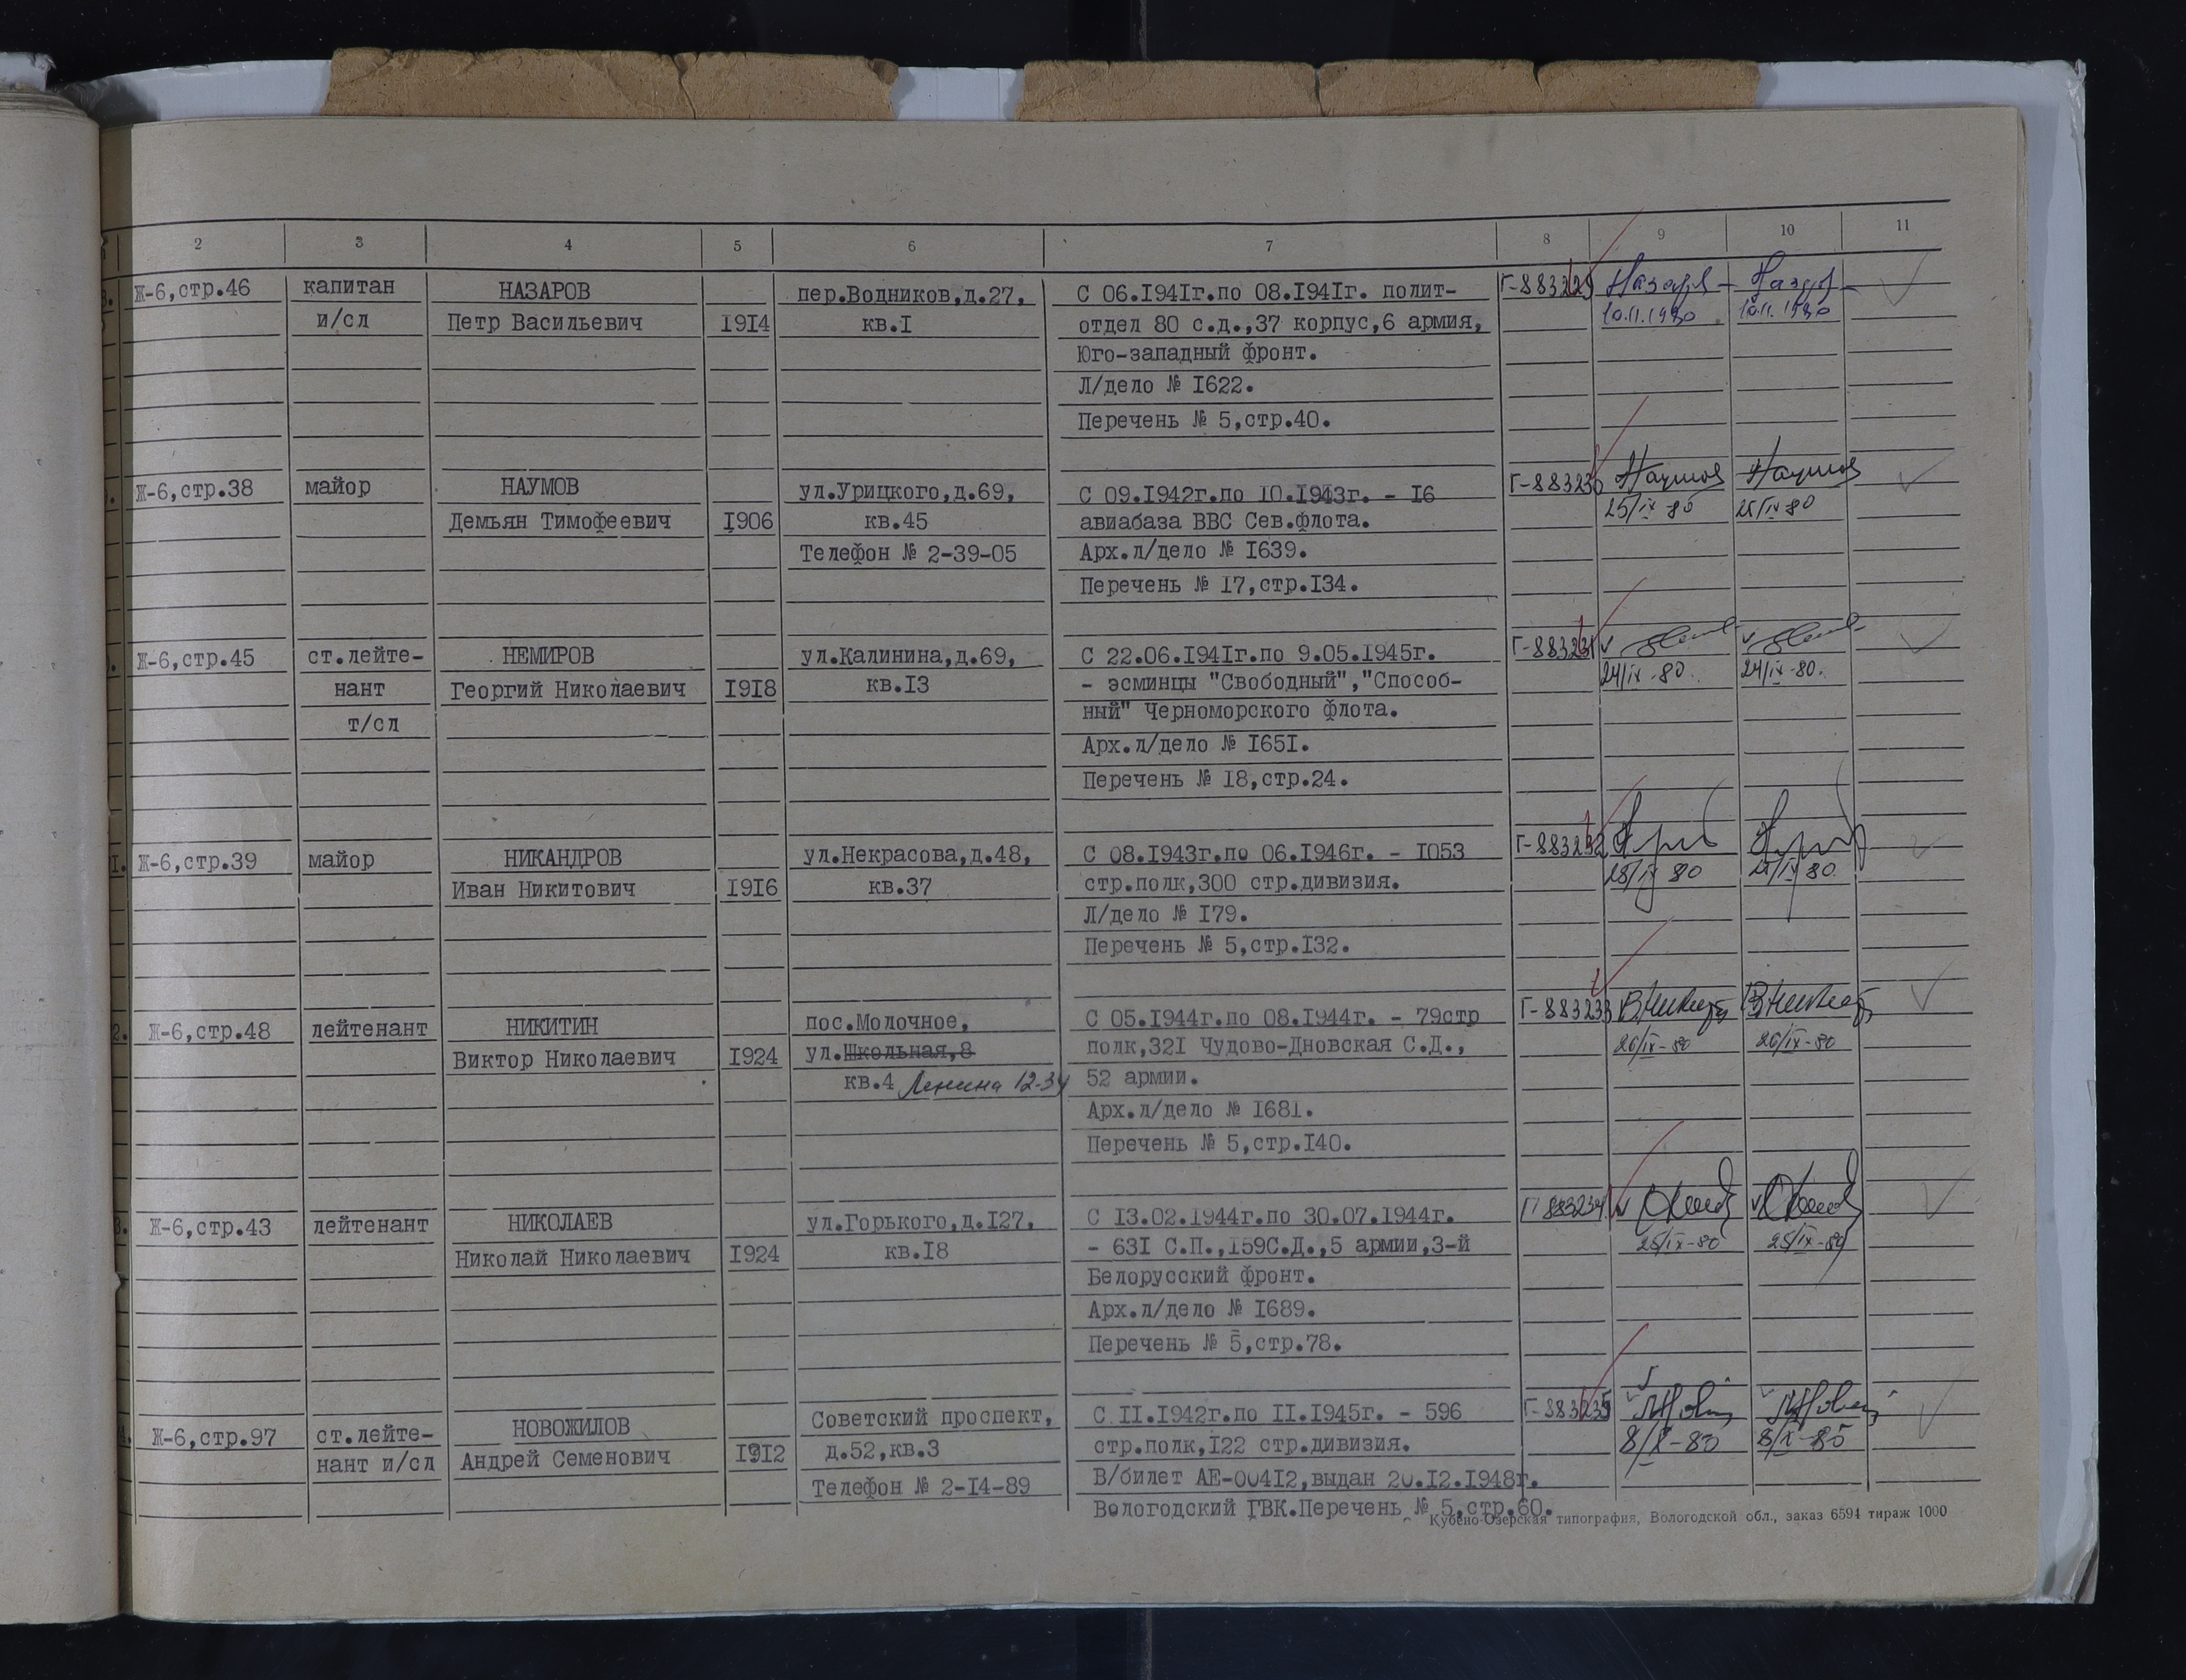 2 3 4 5 6 7 8 9 10 11
Ж-6,стр.46 капитан НАЗАРОВ пер.Водников,д.27, С 06.I94Iг.по 08.I94Iг. полит- Г-883229 Назаров Назаров
и/сл Петр Васильевич I9I4 кв.I отдел 80 с.д.,37 корпус,6 армия, 10.11.1980 10.11.1980
Юго-западный фронт.
Л/дело № I622.
Перечень № 5,стр.40.
Ж-6,стр.38 майор НАУМОВ ул.Урицкого,д.69, С 09.I942г.по I0.I943г. - I6 Г-883230 Наумов Наумов
Демьян Тимофеевич I906 кв.45 авиабаза ВВС Сев.флота. 25/IX 80 25/IX 80
Телефон № 2-39-05 Арх.л/дело № I639.
Перечень № I7,стр.I34.
Ж-6,стр.45 ст.лейте- НЕМИРОВ ул.Калинина,д.69, С 22.06.I94Iг.по 9.05.I945г. Г-883231
нант Георгий Николаевич I9I8 кв.I3 - эсминцы "Свободный","Способ- 24/IX-80. 24/IX-80.
т/сл ный" Черноморского флота.
Арх.л/дело № I65I.
Перечень № I8,стр.24.
Ж-6,стр.39 майор НИКАНДРОВ ул.Некрасова,д.48, С 08.I943г.по 06.I946г. - I053 Г-883232
Иван Никитович I9I6 кв.37 стр.полк,300 стр.дивизия.
Л/дело № I79.
Перечень № 5,стр.I32.
Ж-6,стр.48 лейтенант НИКИТИН пос.Молочное, С 05.I944г.по 08.I944г. - 79стр Г-883233
Виктор Николаевич I924 ул.Школьная,8 полк,32I Чудово-Дновская С.Д., 26/IX-80 26/IX-80
кв.4 Ленина 12-34 52 армии.
Арх.л/дело № I68I.
Перечень № 5,стр.I40.
Ж-6,стр.43 лейтенант НИКОЛАЕВ ул.Горького,д.I27, С I3.02.I944г.по 30.07.I944г. Г-883234
Николай Николаевич I924 кв.I8 - 63I С.П.,I59С.Д.,5 армии,3-й 25/IX-80 25/IX-80
Белорусский фронт.
Арх.л/дело № I689.
Перечень № 5,стр.78.
Ж-6,стр.97 ст.лейте- НОВОЖИЛОВ Советский проспект, С II.I942г.по II.I945г. - 596 Г-883235
нант и/сл Андрей Семенович I9I2 д.52,кв.3 стр.полк,I22 стр.дивизия. 8/X-85 8/X-85
Телефон № 2-I4-89 В/билет АЕ-004I2,выдан 20.I2.I948г.
Вологодский ГВК.Перечень № 5,стр.60.
Кубено-Озерская типография, Вологодской обл., заказ 6594 тираж 1000